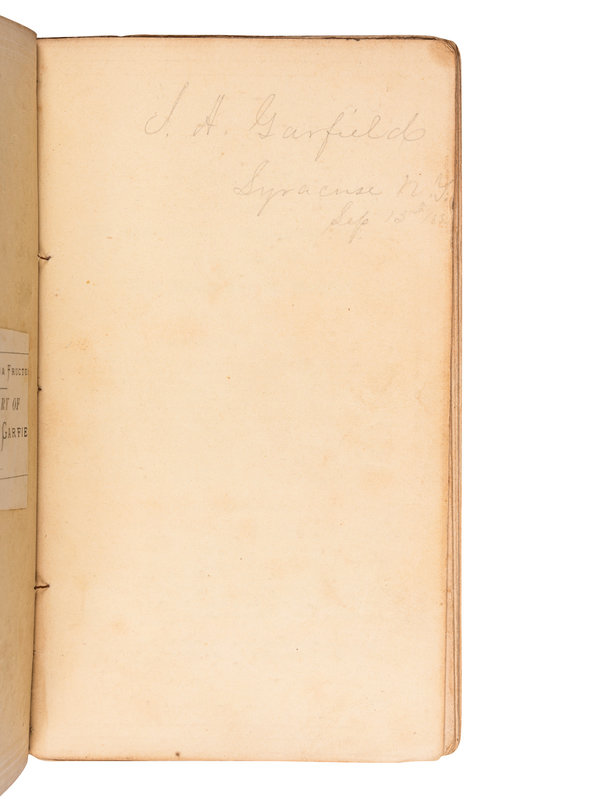 J. A. Garfield
Syracuse N. Y.
Sep 15
A FRUCTU
RY OF
GARFIE